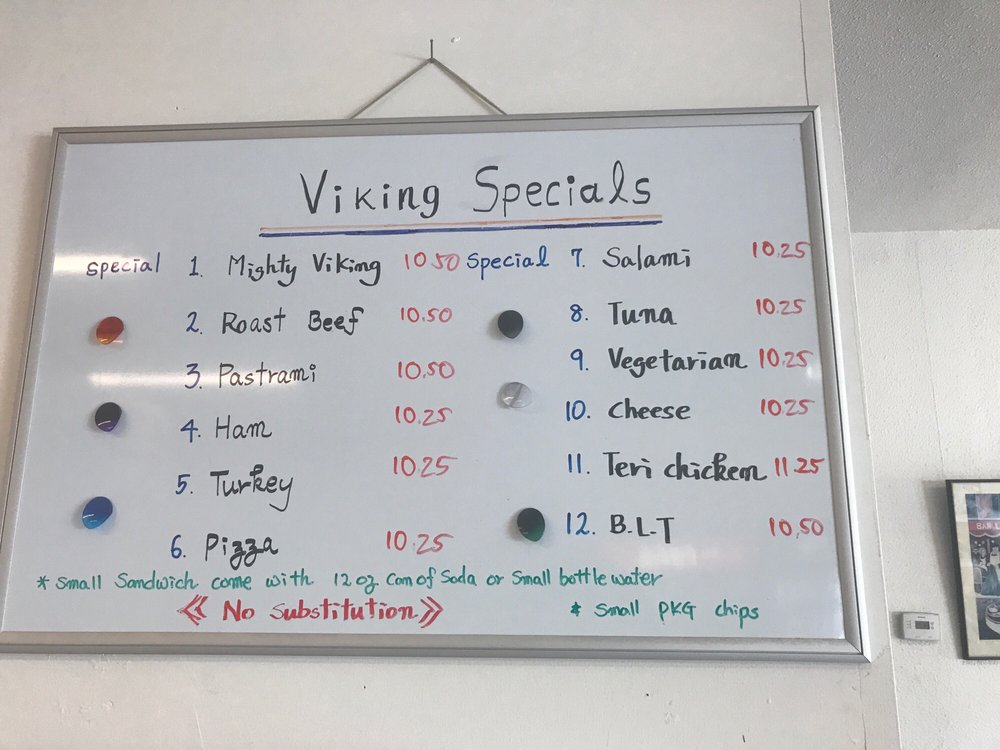 Viking Specials
special 1. Mighty Viking 10.50
2. Roast Beef 10.50
3. Pastrami 10.50
4. Ham 10.25
5. Turkey 10.25
6. Pizza 10.25
Special 7. Salami 10.25
8. Tuna 10.25
9. Vegetarian 10.25
10. Cheese 10.25
11. Teri chicken 11.25
12. B.L.T 10.50
* Small Sandwich come with 12 oz Can of Soda or Small bottle water
<< No substitution >>
* Small PKG chips